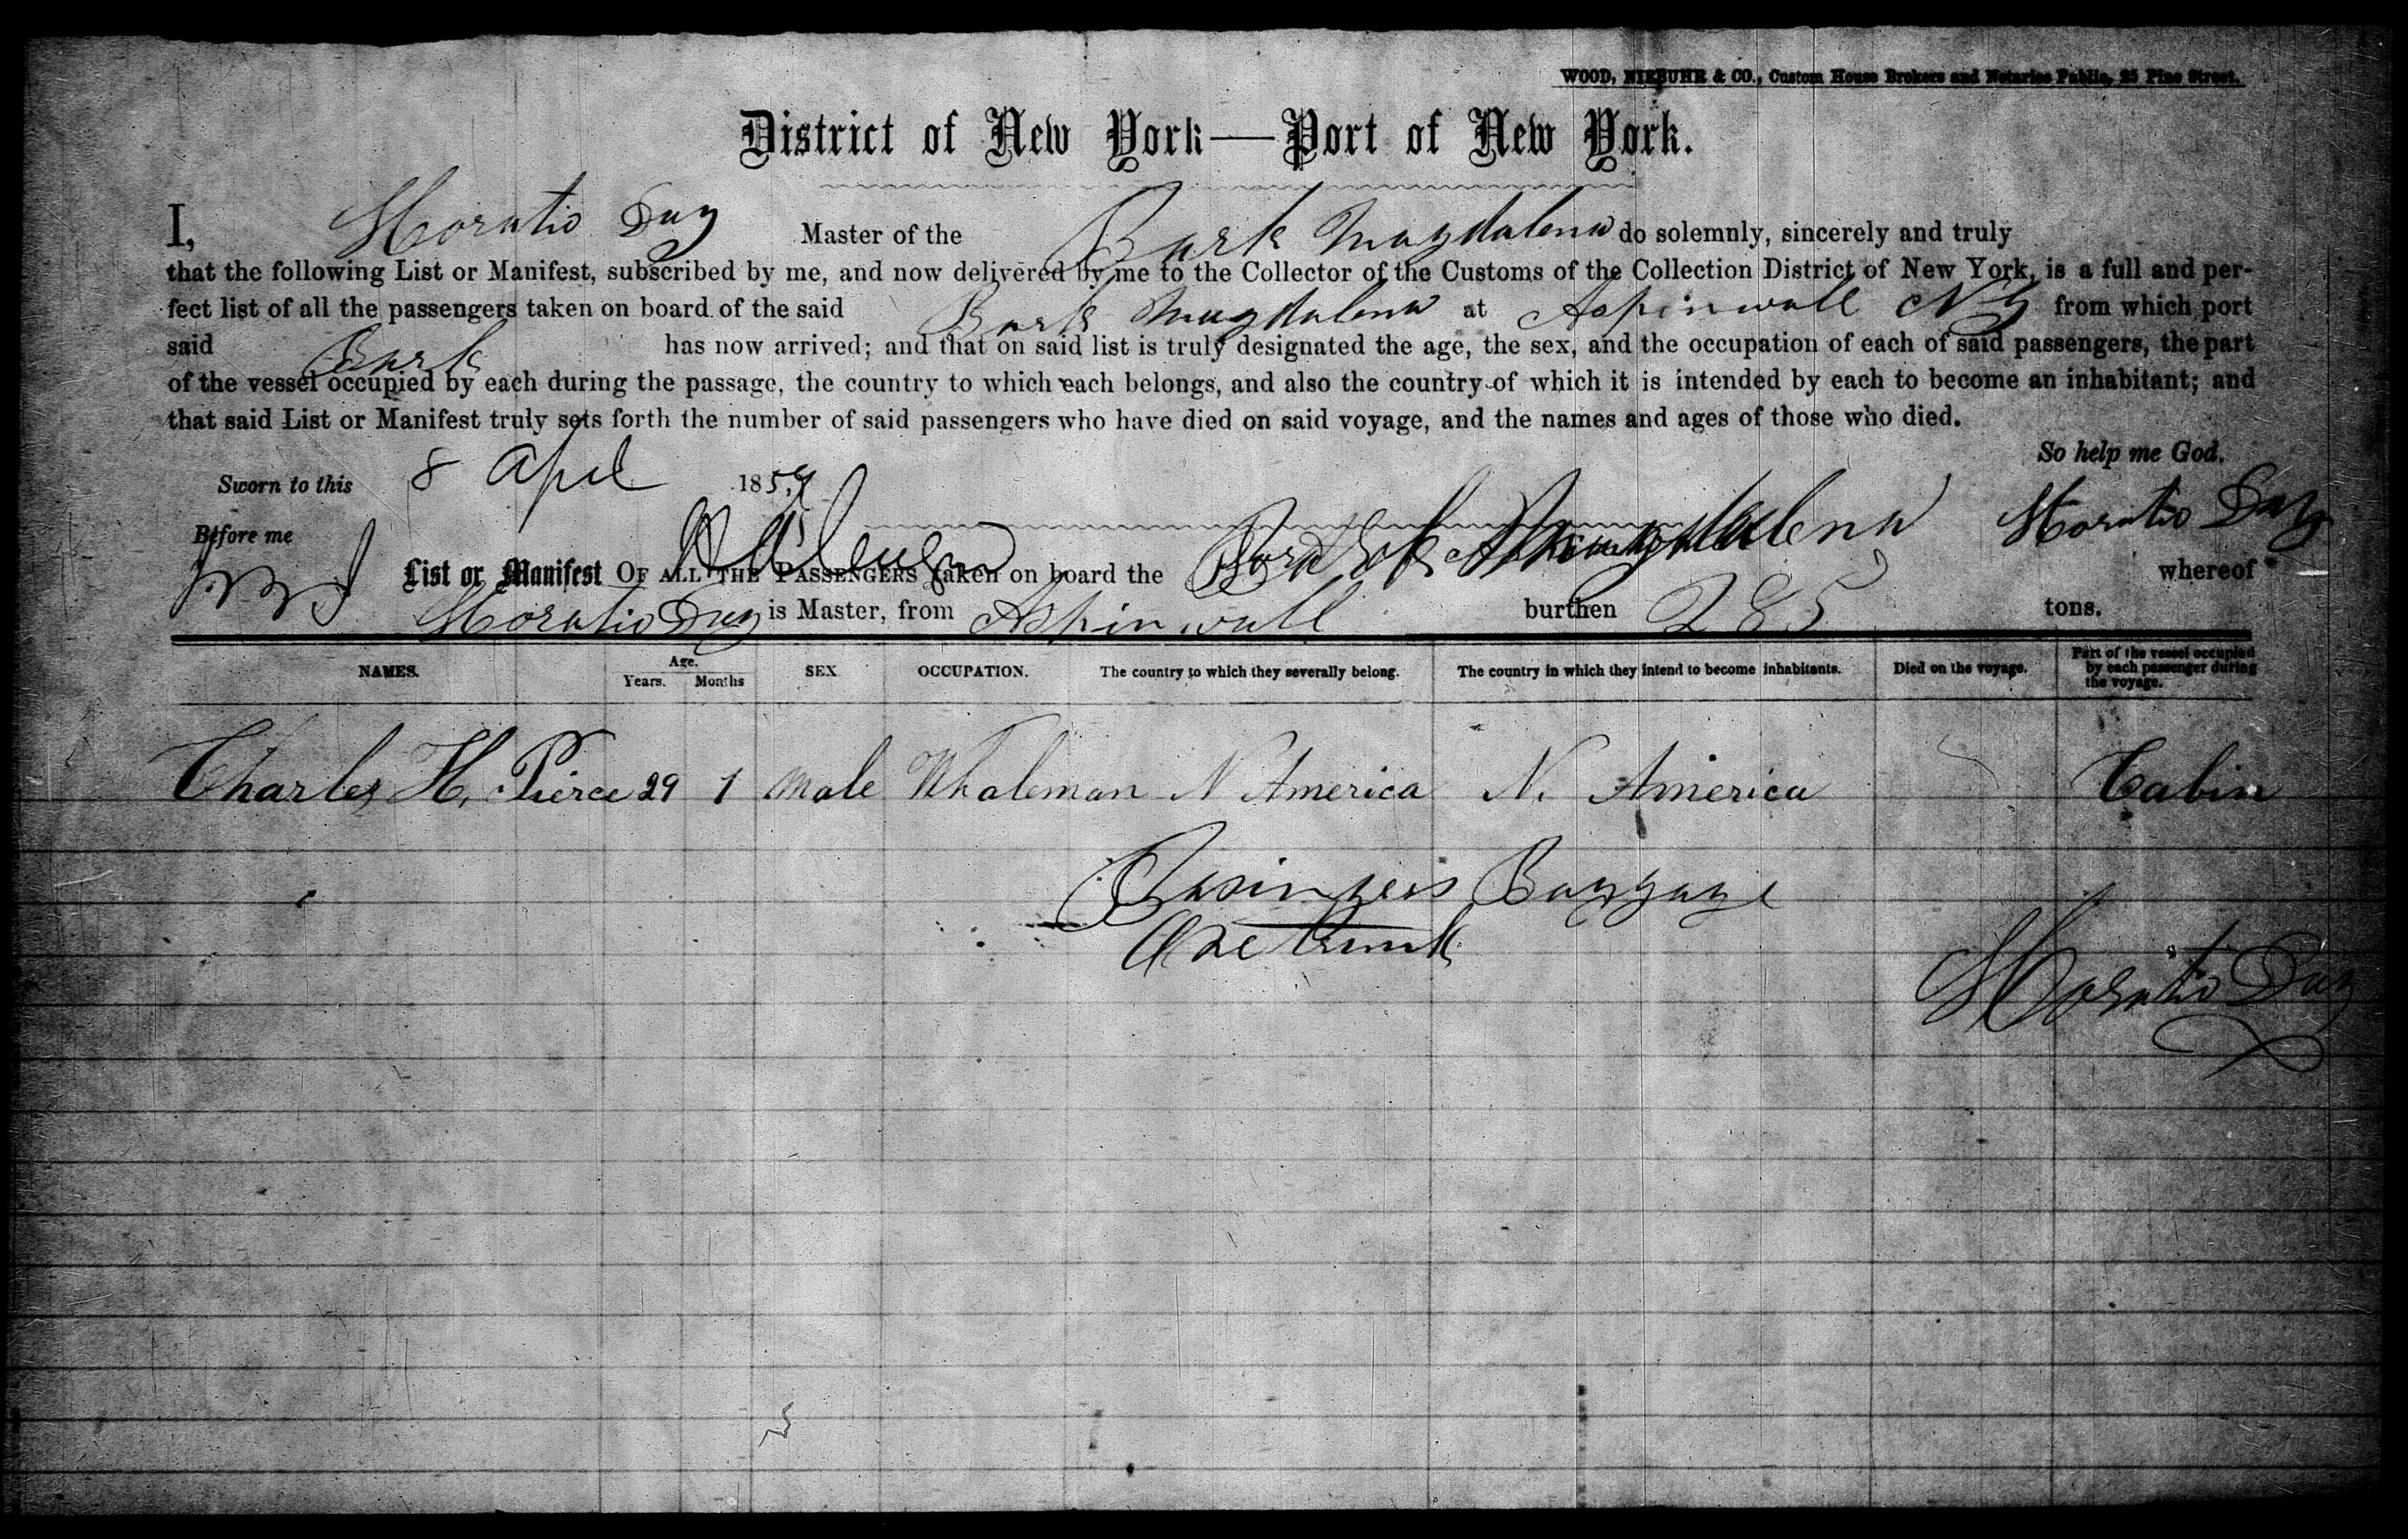 WOOD, NIEBUHR & CO., Custom House Brokers and Notaries Public, 25 Pine Street.
District of New York—Port of New York.
I, Horatio Day Master of the Bark Magdalena do solemnly, sincerely and truly
that the following List or Manifest, subscribed by me, and now delivered by me to the Collector of the Customs of the Collection District of New York, is a full and per-
fect list of all the passengers taken on board of the said Bark Magdalena at Aspinwall N G from which port
said Bark has now arrived; and that on said list is truly designated the age, the sex, and the occupation of each of said passengers, the part
of the vessel occupied by each during the passage, the country to which each belongs, and also the country of which it is intended by each to become an inhabitant; and
that said List or Manifest truly sets forth the number of said passengers who have died on said voyage, and the names and ages of those who died.
So help me God.
Sworn to this 8 Apl 1859
Horatio Day
Before me
List or Manifest OF ALL THE PASSENGERS taken on board the Bark Magdalena whereof
Horatio Day is Master, from Aspinwall burthen 285 tons.
NAMES. Age. Years. Months SEX OCCUPATION. The country to which they severally belong. The country in which they intend to become inhabitants. Died on the voyage. Part of the vessel occupied by each passenger during the voyage.
Charles H. Pierce 29 1 Male Whaleman N America N. America Cabin
Pasingers Baggage
One trunk
Horatio Day